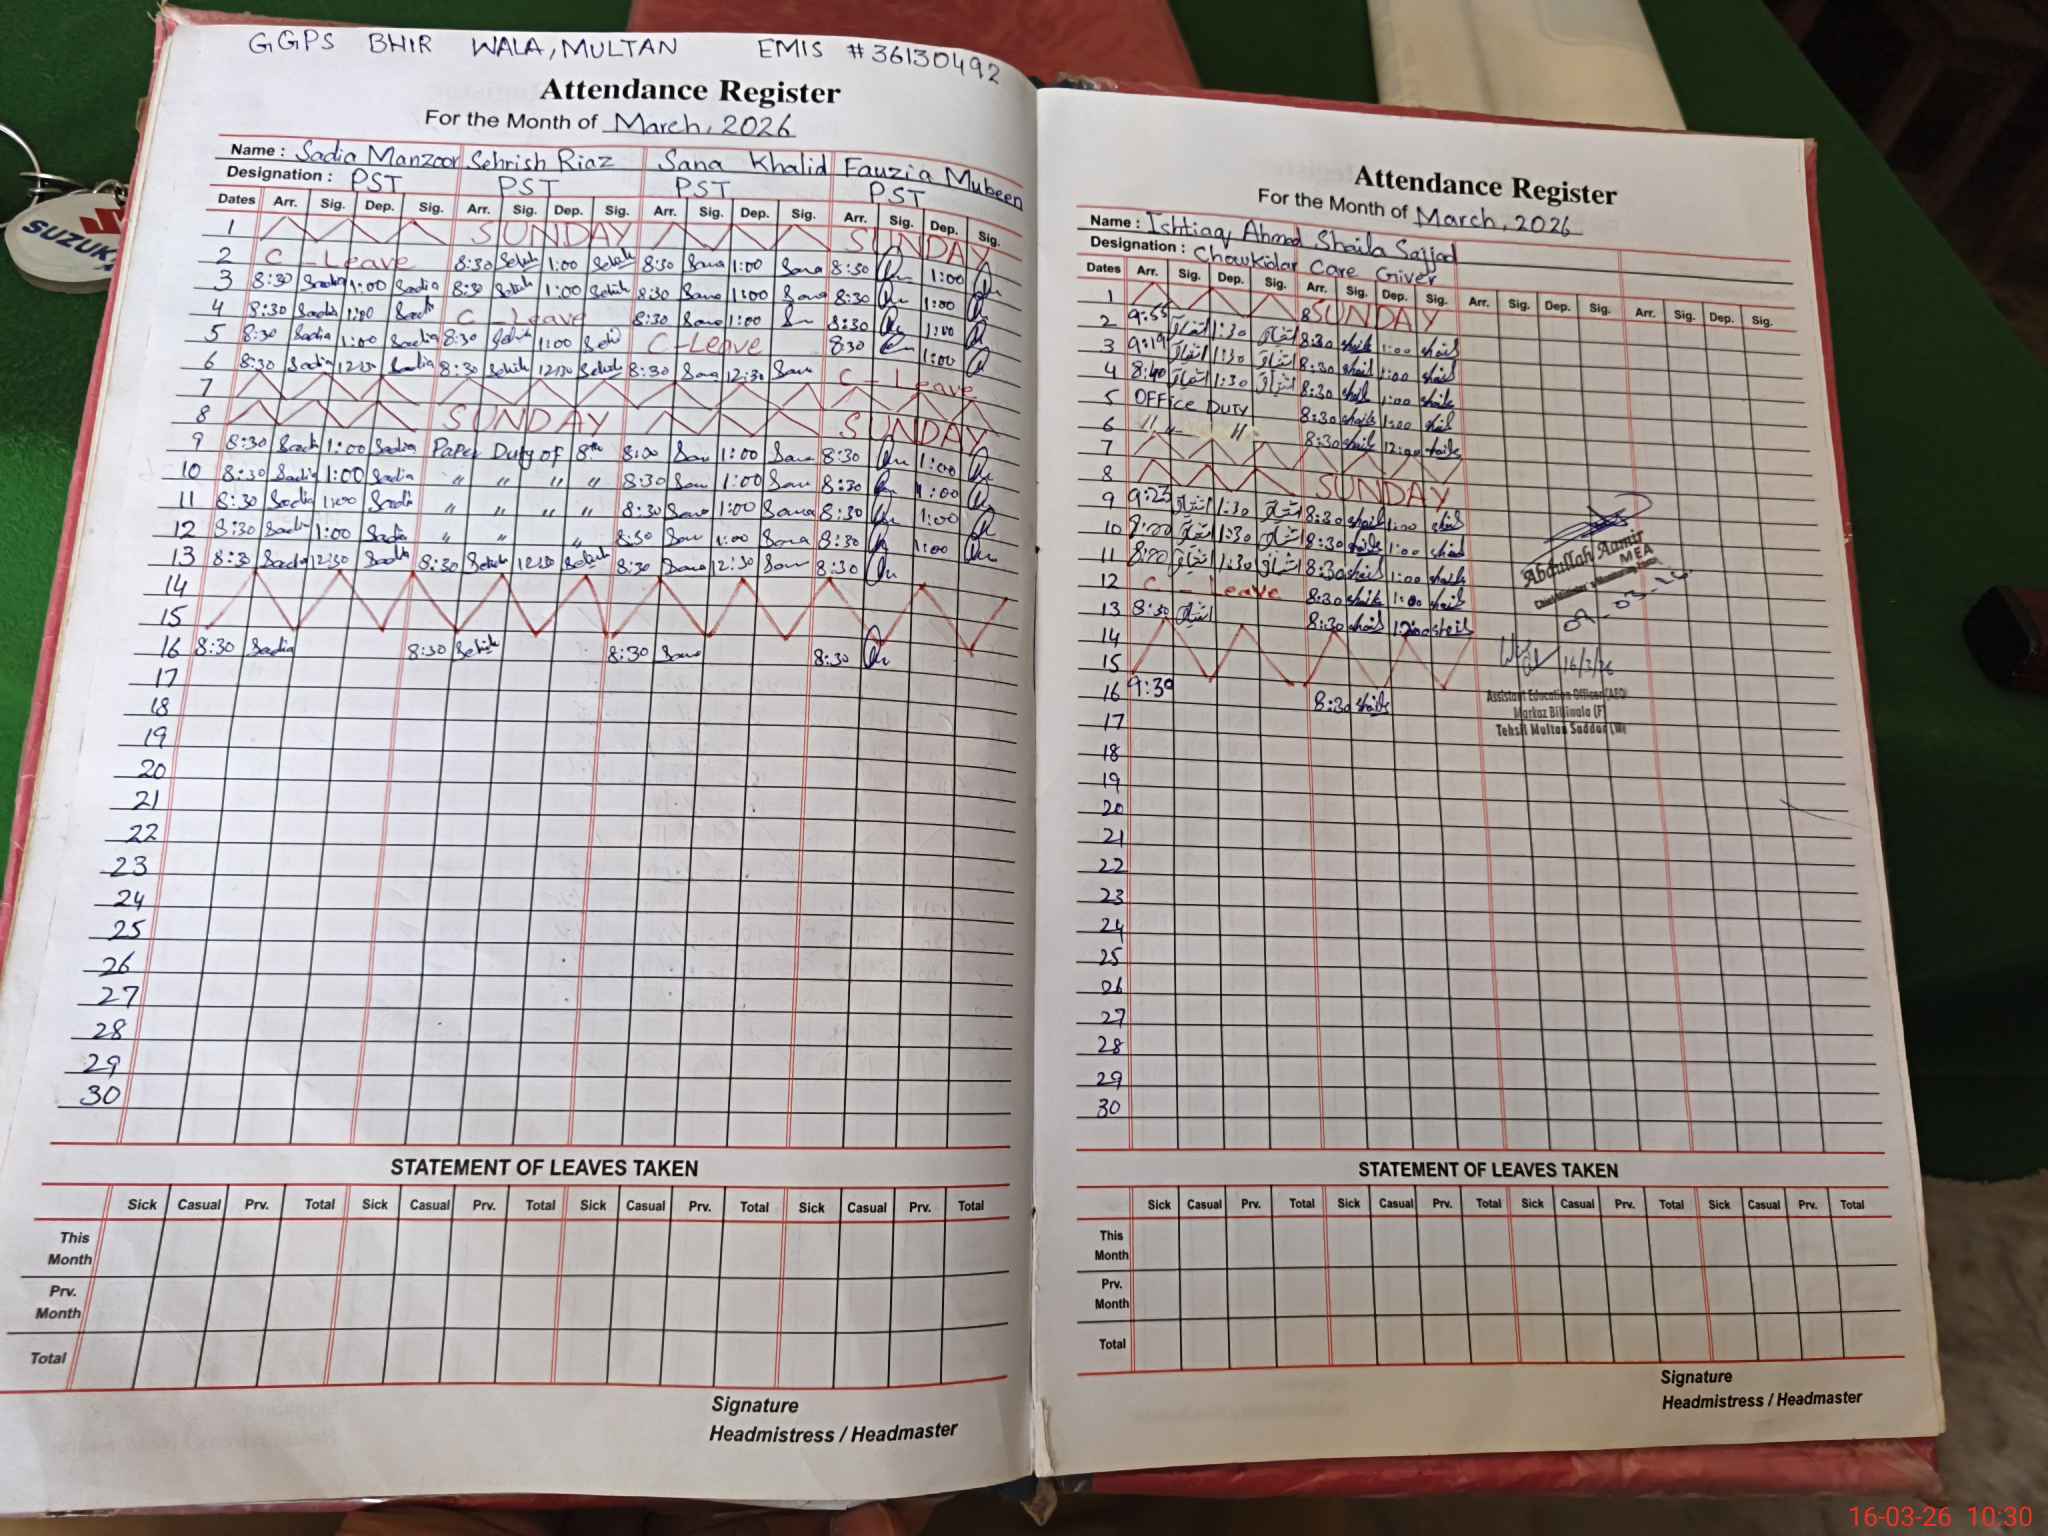 GGPS BHIR WALA, MULTAN EMIS # 36130492
Attendance Register
For the Month of March, 2026
Name : Sadia Manzoor Sehrish Riaz Sana Khalid Fauzia Mubeen
Designation : PST PST PST PST
Dates Arr. Sig. Dep. Sig. Arr. Sig. Dep. Sig. Arr. Sig. Dep. Sig. Arr. Sig. Dep. Sig.
1 SUNDAY SUNDAY
2 C-Leave 8:30 1:00 8:30 Sana 1:00 Sana 8:30 1:00
3 8:30 Sadia 1:00 Sadia 8:30 1:00 8:30 Sana 1:00 Sana 8:30 1:00
4 8:30 Sadia 1:00 Sadia C-Leave 8:30 Sana 1:00 8:30 1:00
5 8:30 Sadia 1:00 Sadia 8:30 1:00 C-Leave 8:30 1:00
6 8:30 Sadia 12:30 Sadia 8:30 12:30 8:30 Sana 12:30 Sana C-Leave
7
8 SUNDAY SUNDAY
9 8:30 Sadia 1:00 Sadia Paper Duty of 8th 8:00 Sana 1:00 Sana 8:30 1:00
10 8:30 Sadia 1:00 Sadia " " " " 8:30 Sana 1:00 Sana 8:30 1:00
11 8:30 Sadia 1:00 Sadia " " " " 8:30 Sana 1:00 Sana 8:30 1:00
12 8:30 Sadia 1:00 Sadia " " " 8:30 Sana 1:00 Sana 8:30 1:00
13 8:30 Sadia 12:30 Sadia 8:30 12:30 8:30 Sana 12:30 Sana 8:30
14
15
16 8:30 Sadia 8:30 8:30 Sana 8:30
17
18
19
20
21
22
23
24
25
26
27
28
29
30
STATEMENT OF LEAVES TAKEN
Sick Casual Prv. Total Sick Casual Prv. Total Sick Casual Prv. Total Sick Casual Prv. Total
This Month
Prv. Month
Total
Signature
Headmistress / Headmaster
Attendance Register
For the Month of March, 2026
Name : Ishtiaq Ahmad Shaila Sajjad
Designation : Chowkidar Care Giver
Dates Arr. Sig. Dep. Sig. Arr. Sig. Dep. Sig. Arr. Sig. Dep. Sig. Arr. Sig. Dep. Sig.
1 SUNDAY
2 9:55 اشتیاق 1:30 اشتیاق 8:30 1:00
3 9:19 اشتیاق 1:30 اشتیاق 8:30 1:00
4 8:40 اشتیاق 1:30 اشتیاق 8:30 1:00
5 OFFice Duty 8:30 1:00
6 " " 8:30 12:00
7
8 SUNDAY
9 9:23 اشتیاق 1:30 اشتیاق 8:30 1:00
10 8:00 اشتیاق 1:30 اشتیاق 8:30 1:00
11 8:00 اشتیاق 1:30 اشتیاق 8:30 1:00
12 C-Leave 8:30 1:00
13 8:30 اشتیاق 8:30
14
15
16 9:30 8:30
17
18
19
20
21
22
23
24
25
26
27
28
29
30
Abdullah Aamir
MEA
09-03-26
16/3/26
Assistant Education Officer (AEO)
Markaz Billiwala (F)
Tehsil Multan Saddar (W)
STATEMENT OF LEAVES TAKEN
Sick Casual Prv. Total Sick Casual Prv. Total Sick Casual Prv. Total Sick Casual Prv. Total
This Month
Prv. Month
Total
Signature
Headmistress / Headmaster
SUZUKI
16-03-26 10:30